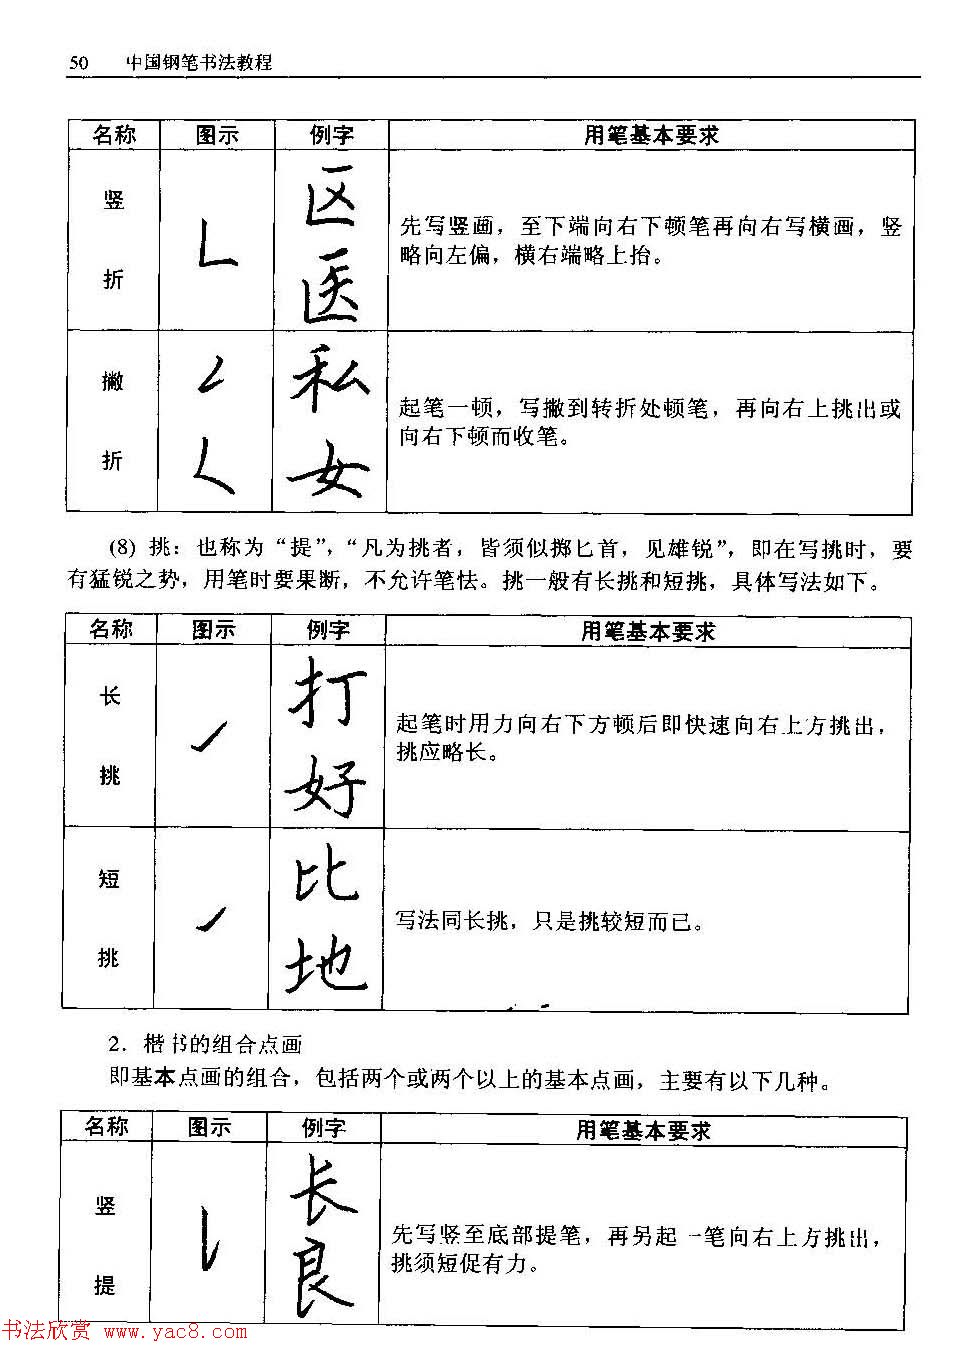 50 中国钢笔书法教程
名称 图示 例字 用笔基本要求
竖折 区医 先写竖画，至下端向右下顿笔再向右写横画，竖
略向左偏，横右端略上抬。
撇折 私女 起笔一顿，写撇到转折处顿笔，再向右上挑出或
向右下顿而收笔。
(8) 挑：也称为“提”，“凡为挑者，皆须似掷匕首，见雄锐”，即在写挑时，要
有猛锐之势，用笔时要果断，不允许笔怯。挑一般有长挑和短挑，具体写法如下。
名称 图示 例字 用笔基本要求
长挑 打好 起笔时用力向右下方顿后即快速向右上方挑出，
挑应略长。
短挑 比地 写法同长挑，只是挑较短而已。
2．楷书的组合点画
即基本点画的组合，包括两个或两个以上的基本点画，主要有以下几种。
名称 图示 例字 用笔基本要求
竖提 长良 先写竖至底部提笔，再另起一笔向右上方挑出，
挑须短促有力。
书法欣赏 www.yac8.com